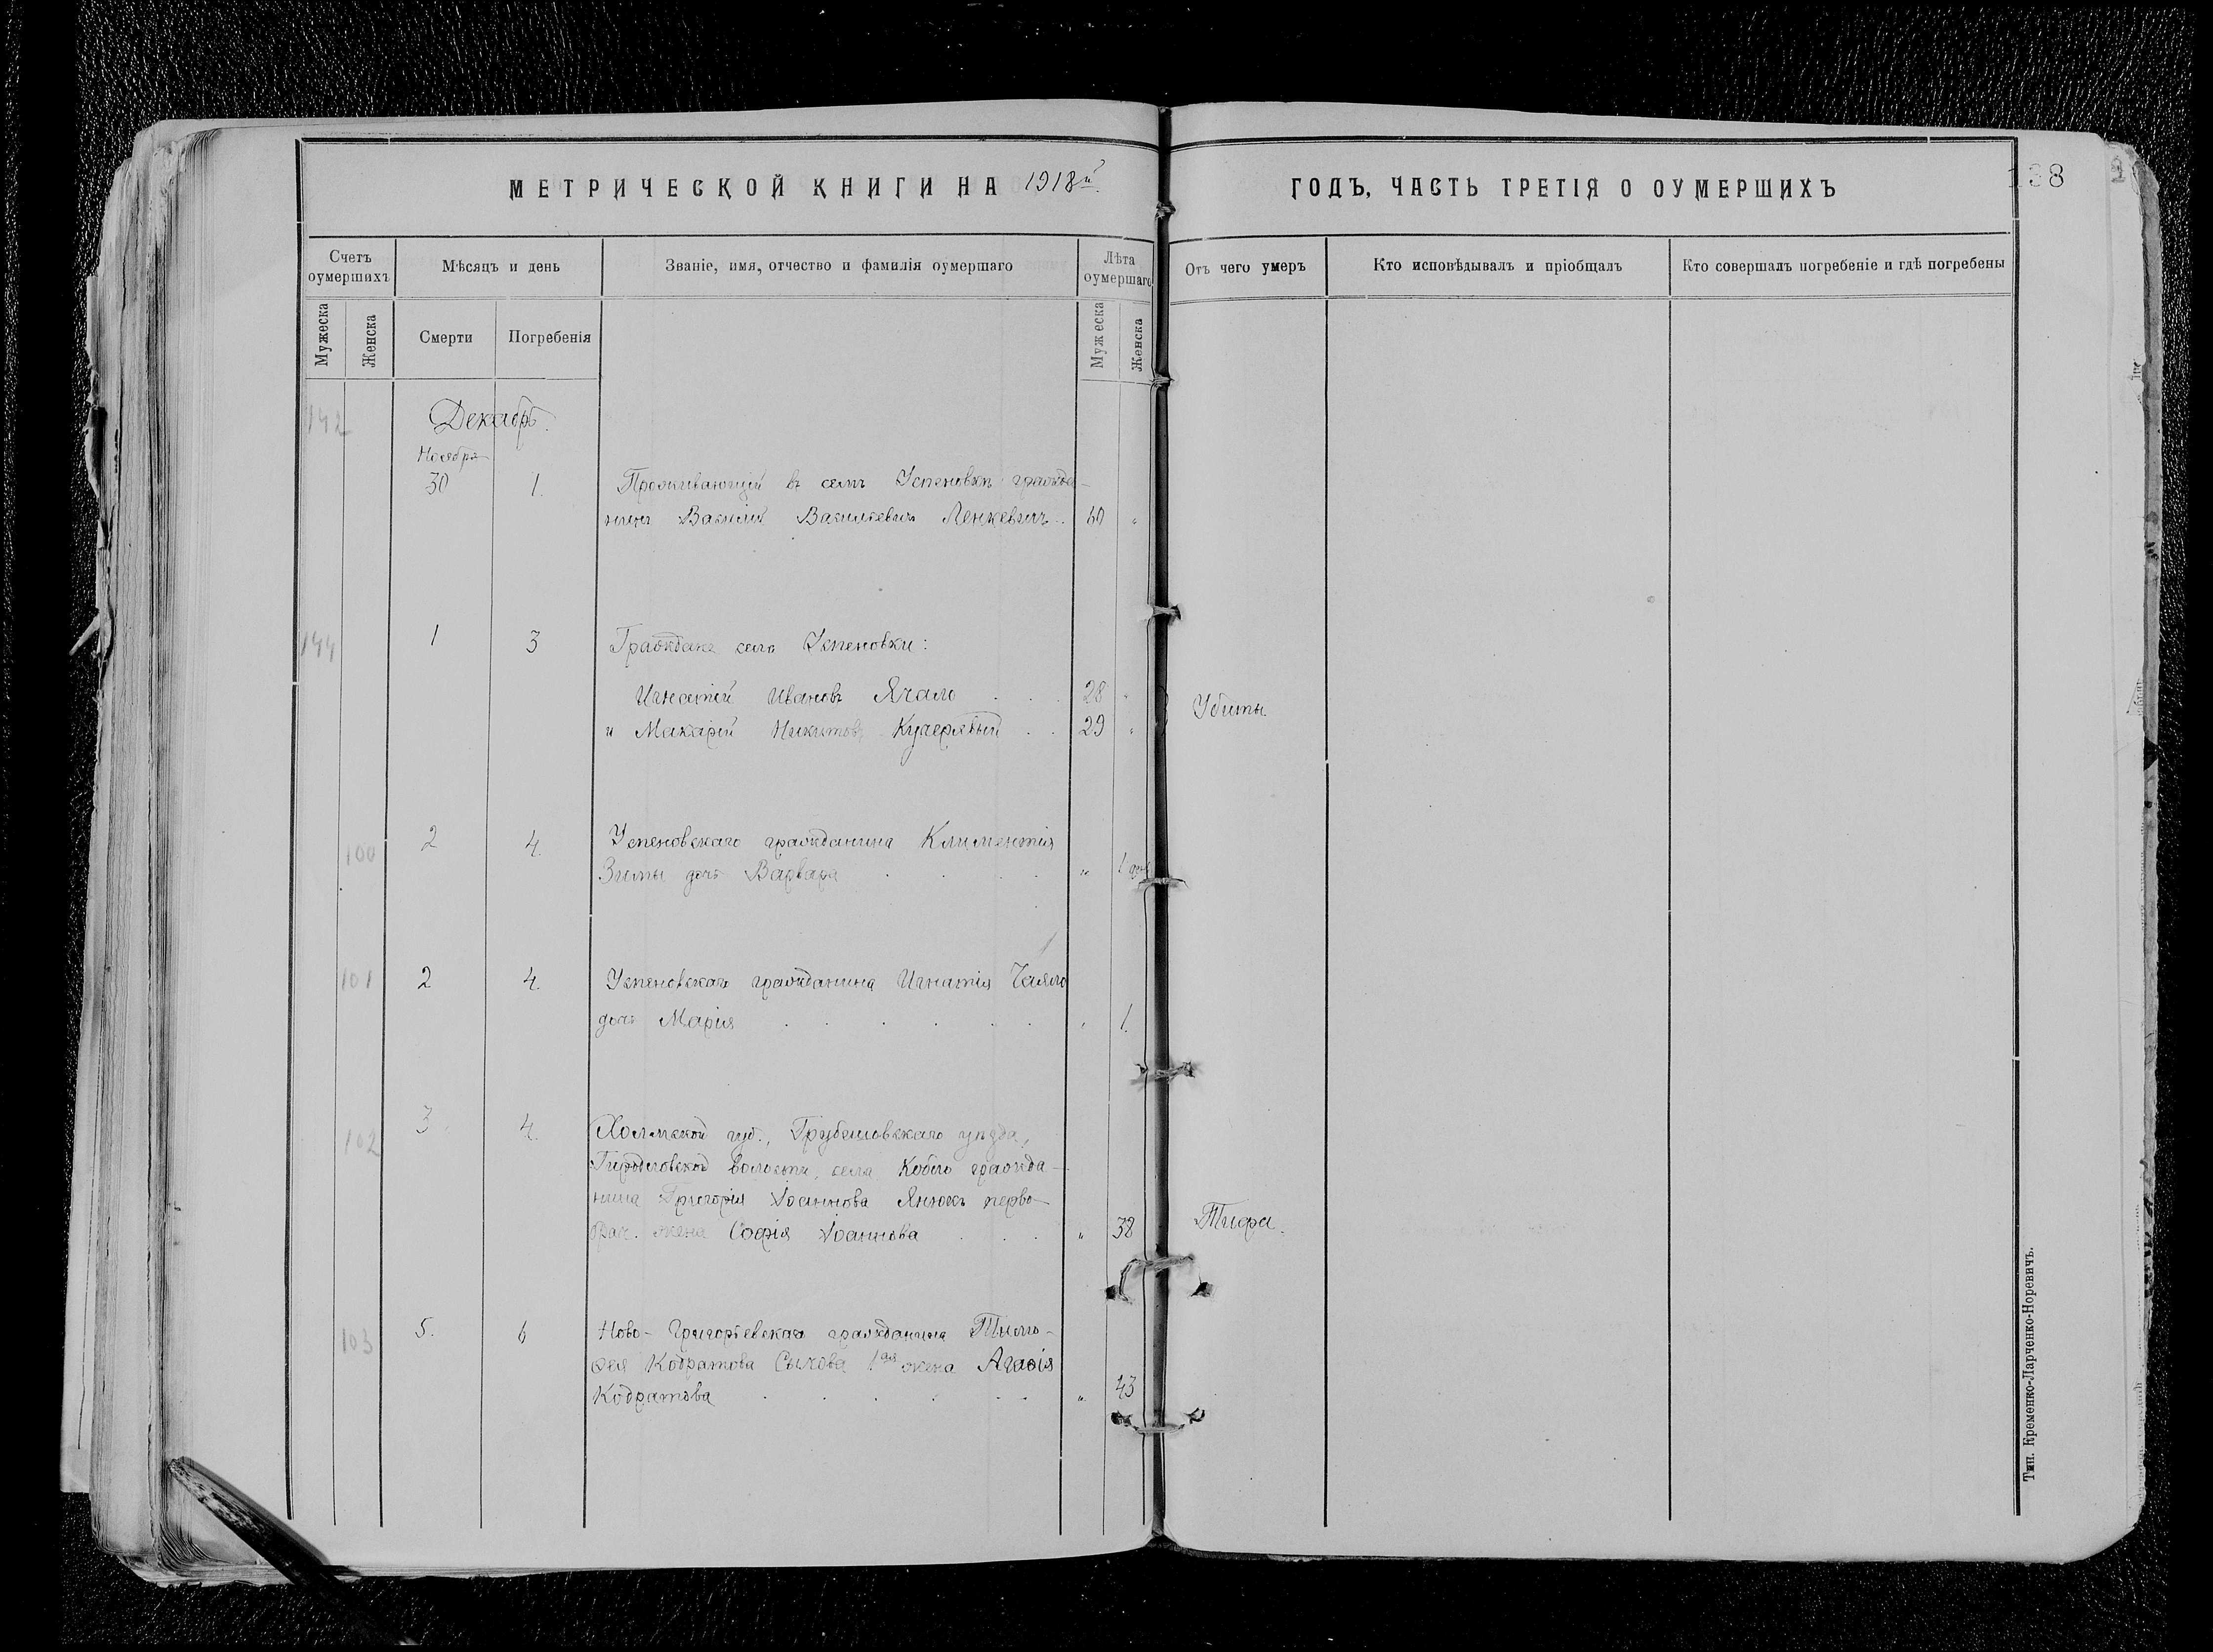 МЕТРИЧЕСКОЙ КНИГИ НА 1918й.
ГОДЪ, ЧАСТЬ ТРЕТІЯ О ОУМЕРШИХЪ
138
Счетъ оумершихъ
Мѣсяцъ и день
Званіе, имя, отчество и фамилія оумершаго
Лѣта оумершаго
Отъ чего умеръ
Кто исповѣдывалъ и пріобщалъ
Кто совершалъ погребеніе и гдѣ погребены
Мужеска
Женска
Смерти
Погребенія
Мужеска
Женска
142
Декабрь.
Ноября
30 1. Проживающій въ селѣ Успеновкѣ гражда-
нинъ Василій Васильевичъ Ленкевичъ .. 60 "
144 1 3 Граждане села Успеновки:
Игнатій Ивановъ Ячало . . . 28 "
Убиты.
и Макарій Никитовъ Кучерявый . . 29 "
100 2 4. Успеновскаго гражданина Климентія
Зимы дочь Варвара . . . . " 1 день
101 2 4. Успеновскаго гражданина Игнатія
дочь Марія . . . . . . " 1.
102 3. 4. Холмской губ., Грубешовскаго уѣзда,
волости, села гражда-
нина Григорія Іоаннова Янюкъ перво-
брач. жена Софія Іоаннова . . . " 38
Тифа.
103 5. 6 Ново-Григорьевскаго гражданина Тимо-
фея Кодратова Сычова 1ая жена Агафія
Кодратова . . . . . . " 43
Тип. Кременко-Ларченко-Норевичъ.